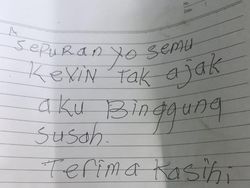 Sepuran yo semu
Kevin tak ajak
aku Binggung
susah.
Terima kasihi